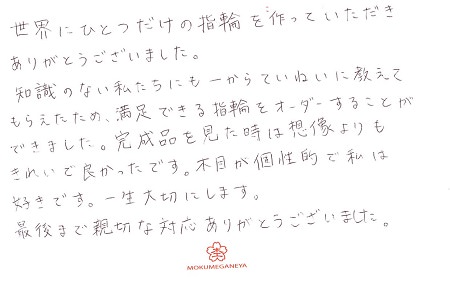 世界にひとつだけの指輪を作っていただき
ありがとうございました。
知識のない私たちにも一からていねいに教えて
もらえたため、満足できる指輪をオーダーすることが
できました。完成品を見た時は想像よりも
きれいで良かったです。木目が個性的で私は
好きです。一生大切にします。
最後まで親切な対応ありがとうございました。
MOKUMEGANEYA